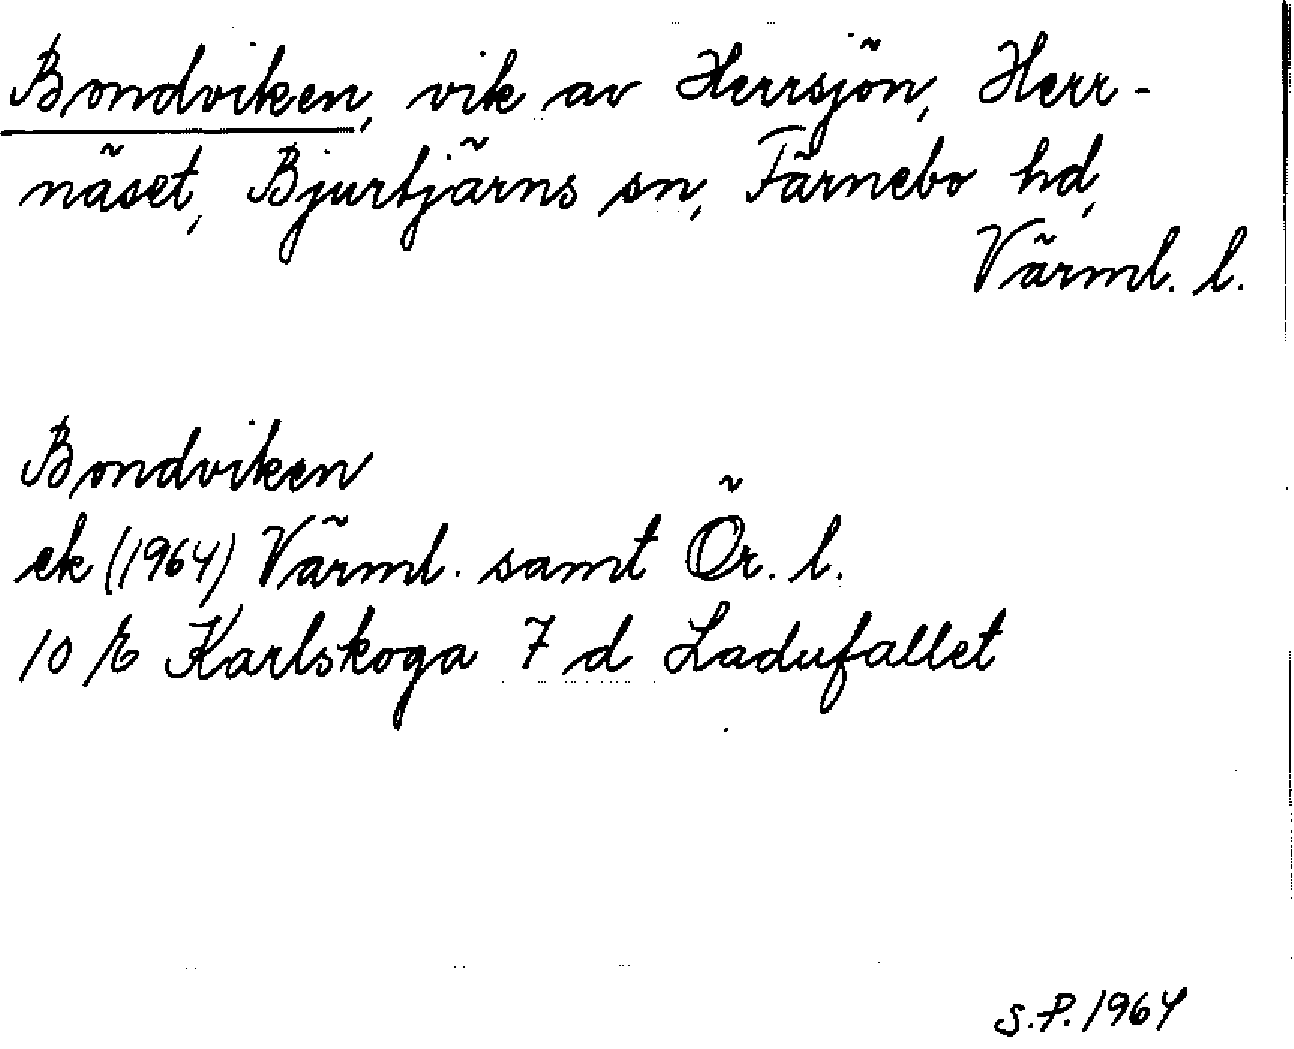 Bondviken, vik av Herrsjön, Herr-
näset, Bjurtjärns sn, Färnebo hd,
Värml. l.
Bondviken
ek (1964) Värml. samt Ör. l.
10 E Karlskoga 7 d Ladufallet
S.P. 1964